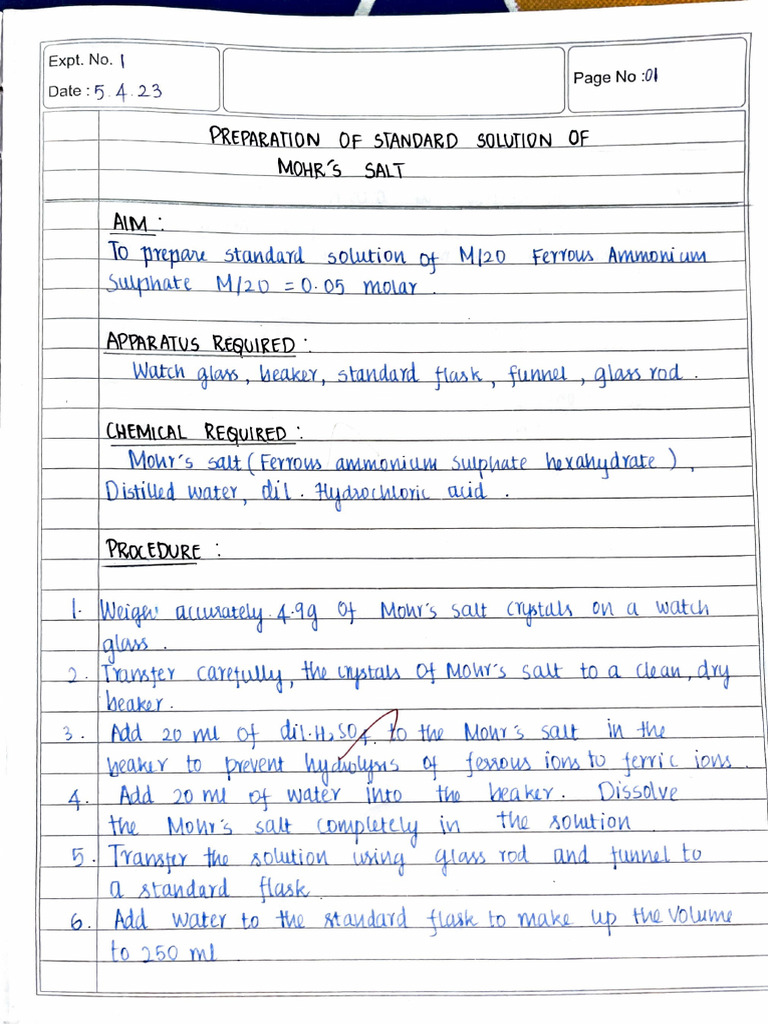 Expt. No. 1
Date : 5.4.23
Page No : 01
PREPARATION OF STANDARD SOLUTION OF
MOHR'S SALT
AIM :
To prepare standard solution of M/20 Ferrous Ammonium
Sulphate M/20 = 0.05 molar.
APPARATUS REQUIRED :
Watch glass, beaker, standard flask, funnel, glass rod.
CHEMICAL REQUIRED :
Mohr's salt (Ferrous ammonium sulphate hexahydrate),
Distilled water, dil. Hydrochloric acid.
PROCEDURE :
1. Weigh accurately 4.9g of Mohr's salt crystals on a watch
glass.
2. Transfer carefully, the crystals of Mohr's salt to a clean, dry
beaker.
3. Add 20 ml of dil. H2SO4 to the Mohr's salt in the
beaker to prevent hydrolysis of ferrous ions to ferric ions.
4. Add 20 ml of water into the beaker. Dissolve
the Mohr's salt completely in the solution
5. Transfer the solution using glass rod and funnel to
a standard flask.
6. Add water to the standard flask to make up the volume
to 250 ml